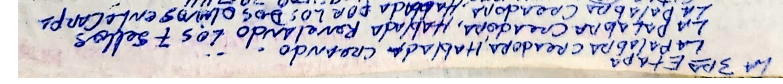 La 3ra Etapa
La Palabra Creadora, Hablada Creando.
La Palabra Creadora, Hablada Revelando Los 7 Sellos
La Palabra Creadora Hablada Por Los Dos Olivos